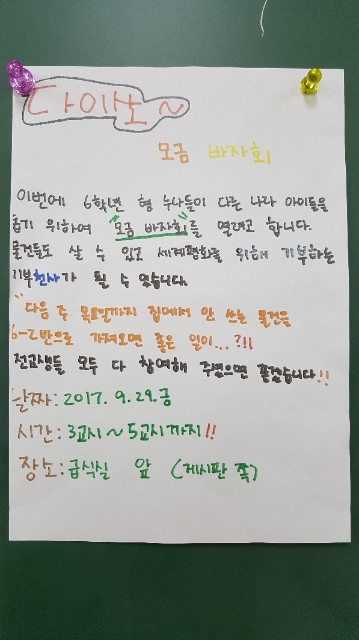 다이노~
모금 바자회
이번에 6학년 형 누나들이 다른 나라 아이들을
돕기 위하여 "모금 바자회"를 열려고 합니다.
물건들도 살 수 있고 세계평화를 위해 기부하는
기부천사가 될 수 있습니다.
"다음 주 목요일까지 집에서 안 쓰는 물건을
6-2반으로 가져오면 좋은 일이...?!!
전교생들 모두 다 참여해 주셨으면 좋겠습니다!!
날짜: 2017. 9. 29. 금
시간: 3교시~5교시까지!!
장소: 급식실 앞 (게시판 쪽)